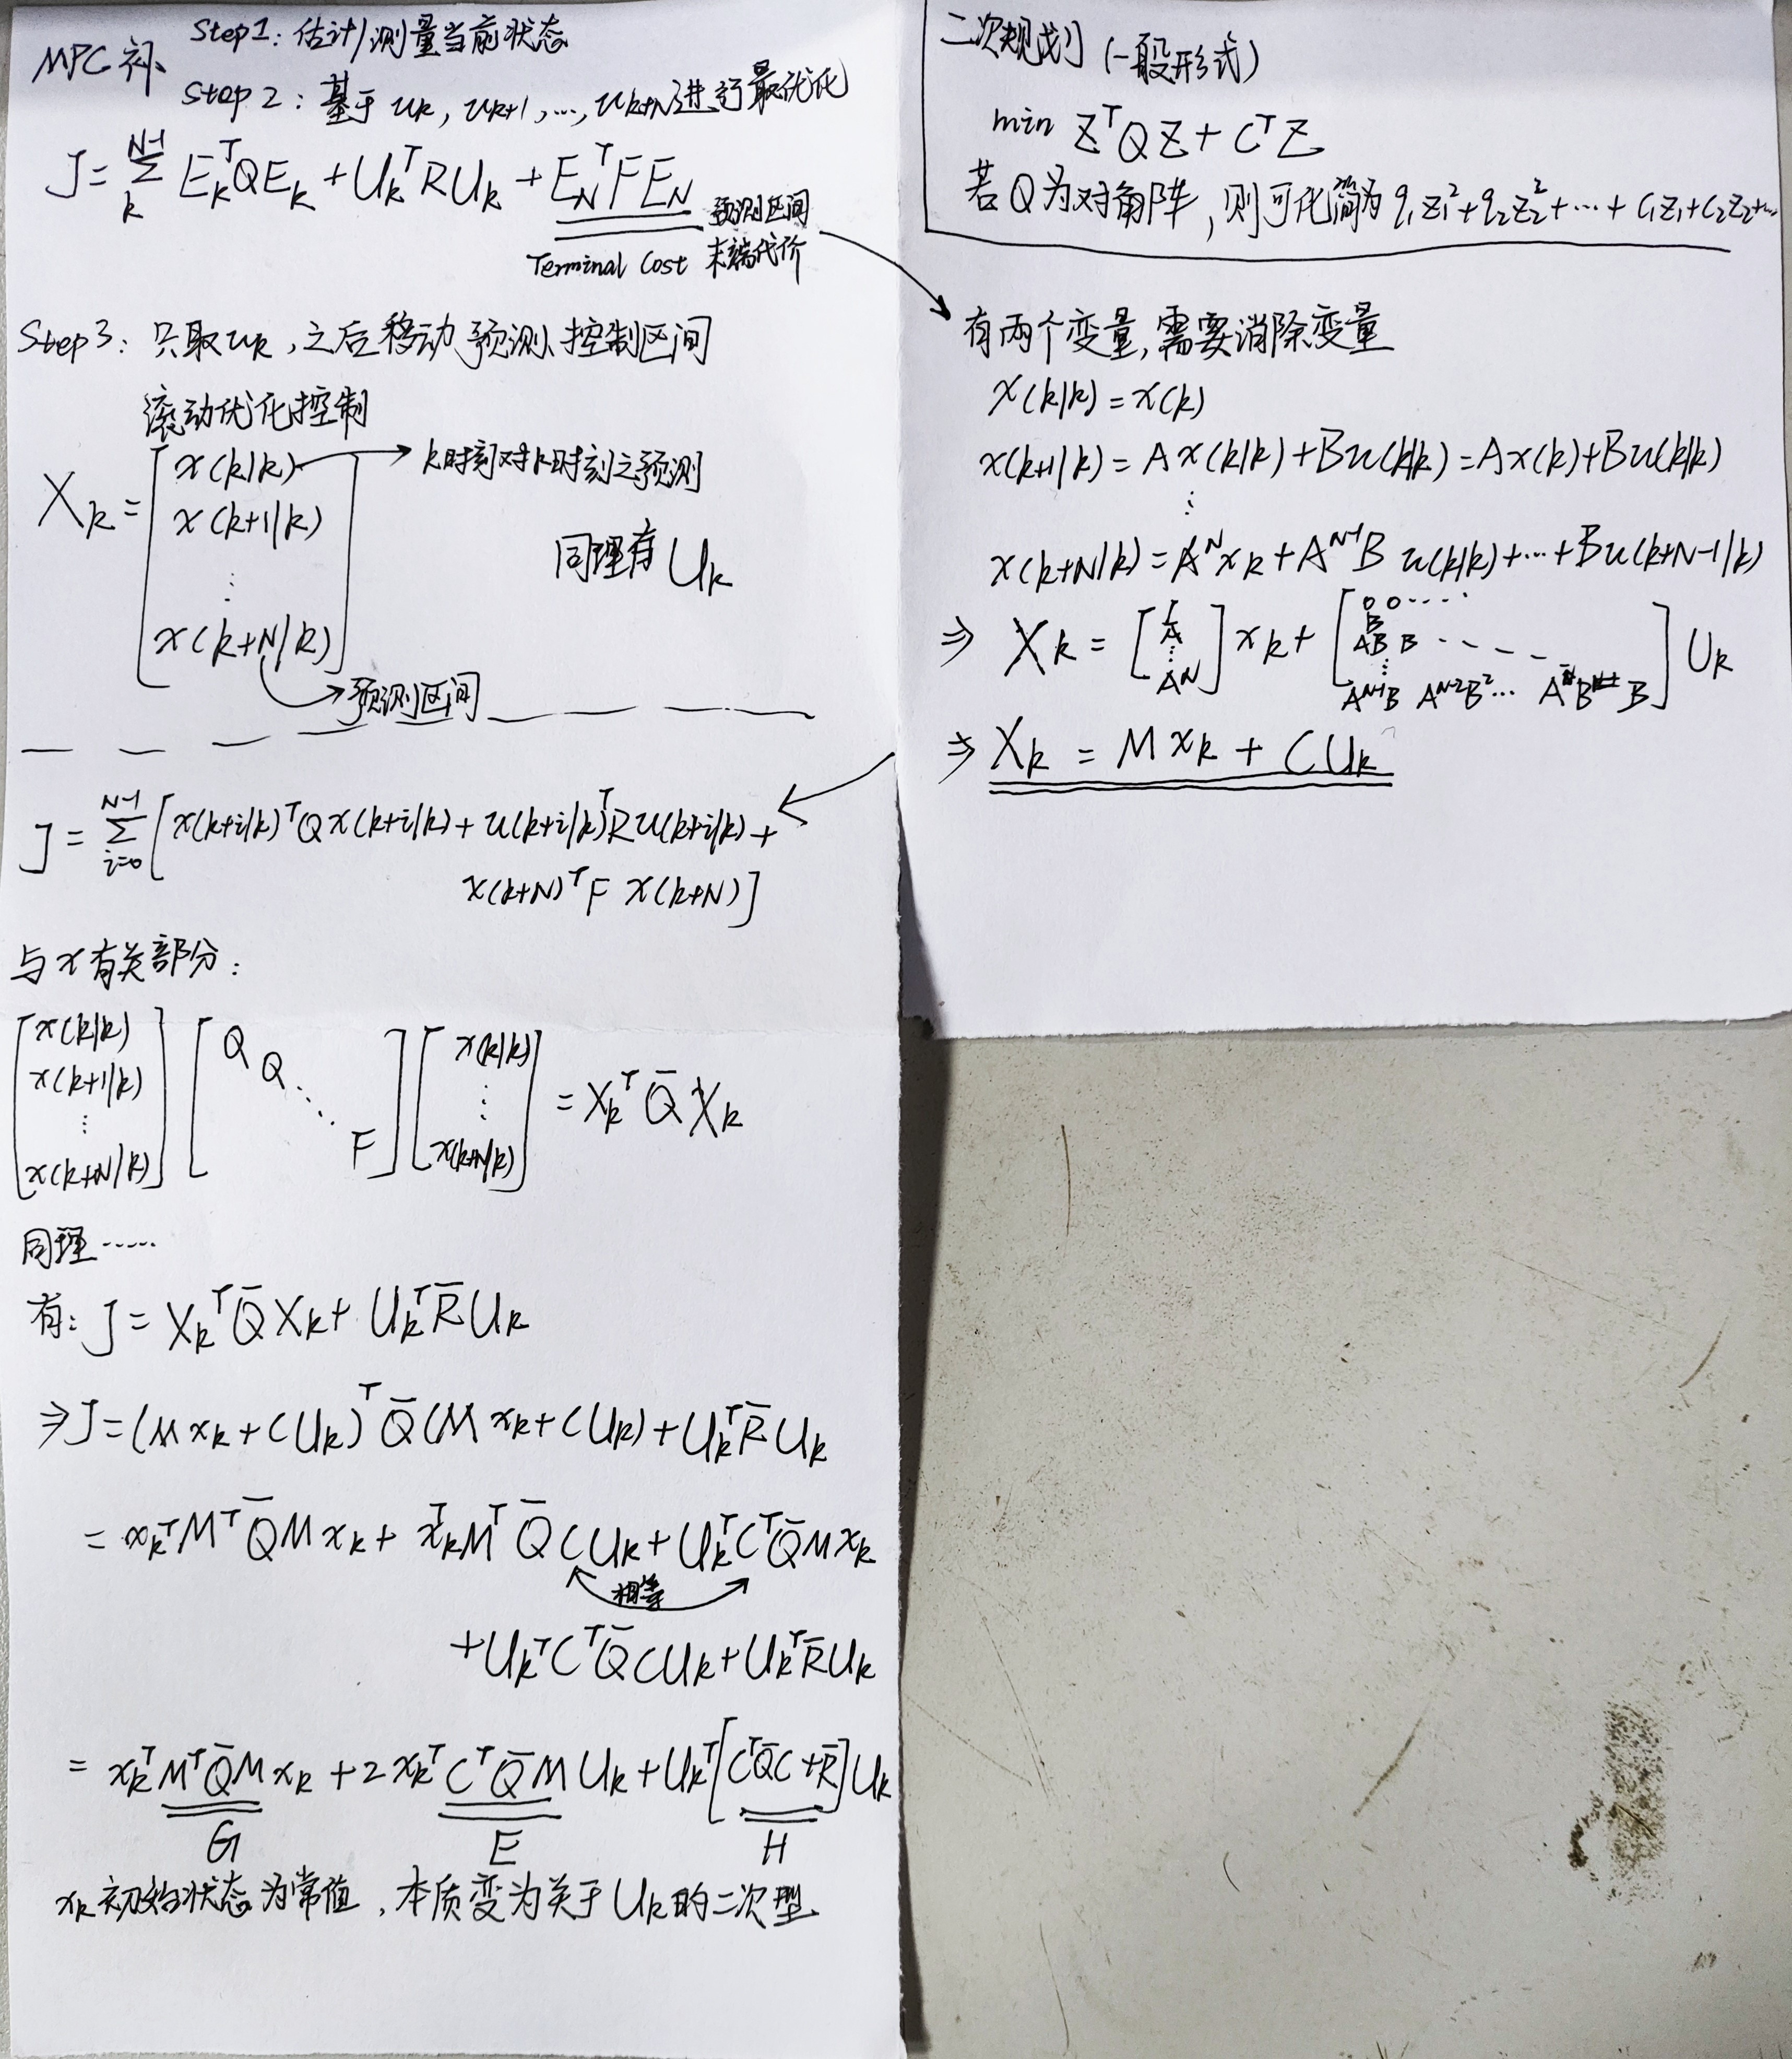 MPC 补
Step1: 估计/测量当前状态
Step 2: 基于 uk, uk+1, ..., uk+N进行最优化
J = Σ_k^{N-1} E_k^T Q E_k + U_k^T R U_k + E_N^T F E_N
Terminal Cost 预测区间末端代价
Step 3: 只取 uk, 之后移动预测、控制区间
滚动优化控制
X_k = [x(k|k) → k时刻对k时刻之预测
x(k+1|k)
⋮
x(k+N|k)] → 预测区间
同理有 U_k
J = Σ_{i=0}^{N-1} [x(k+i|k)^T Q x(k+i|k) + u(k+i|k)^T R u(k+i|k) +
x(k+N)^T F x(k+N)]
与 x 有关部分:
[x(k|k) x(k+1|k) ⋮ x(k+N|k)] [Q Q ⋱ F] [x(k|k) ⋮ x(k+N|k)] = X_k^T Q̄ X_k
同理 ······
有: J = X_k^T Q̄ X_k + U_k^T R̄ U_k
⇒ J = (M x_k + C U_k)^T Q̄ (M x_k + C U_k) + U_k^T R̄ U_k
= x_k^T M^T Q̄ M x_k + x_k^T M^T Q̄ C U_k + U_k^T C^T Q̄ M x_k
相等
+ U_k^T C^T Q̄ C U_k + U_k^T R̄ U_k
= x_k^T M^T Q̄ M x_k + 2 x_k^T C^T Q̄ M U_k + U_k^T [C^T Q̄ C + R̄] U_k
G E H
x_k 初始状态为常值, 本质变为关于 U_k 的二次型
二次规划 (一般形式)
min Z^T Q Z + C^T Z
若 Q 为对角阵, 则可化简为 q_1 z_1^2 + q_2 z_2^2 + ··· + c_1 z_1 + c_2 z_2 + ...
有两个变量, 需要消除变量
x(k|k) = x(k)
x(k+1|k) = A x(k|k) + B u(k|k) = A x(k) + B u(k|k)
⋮
x(k+N|k) = A^N x_k + A^{N-1} B u(k|k) + ··· + B u(k+N-1|k)
⇒ X_k = [I A ⋮ A^N] x_k + [0 0 ···· B AB B - - - - ⋮ A^{N-1}B A^{N-2}B^2 ... B] U_k
⇒ X_k = M x_k + C U_k